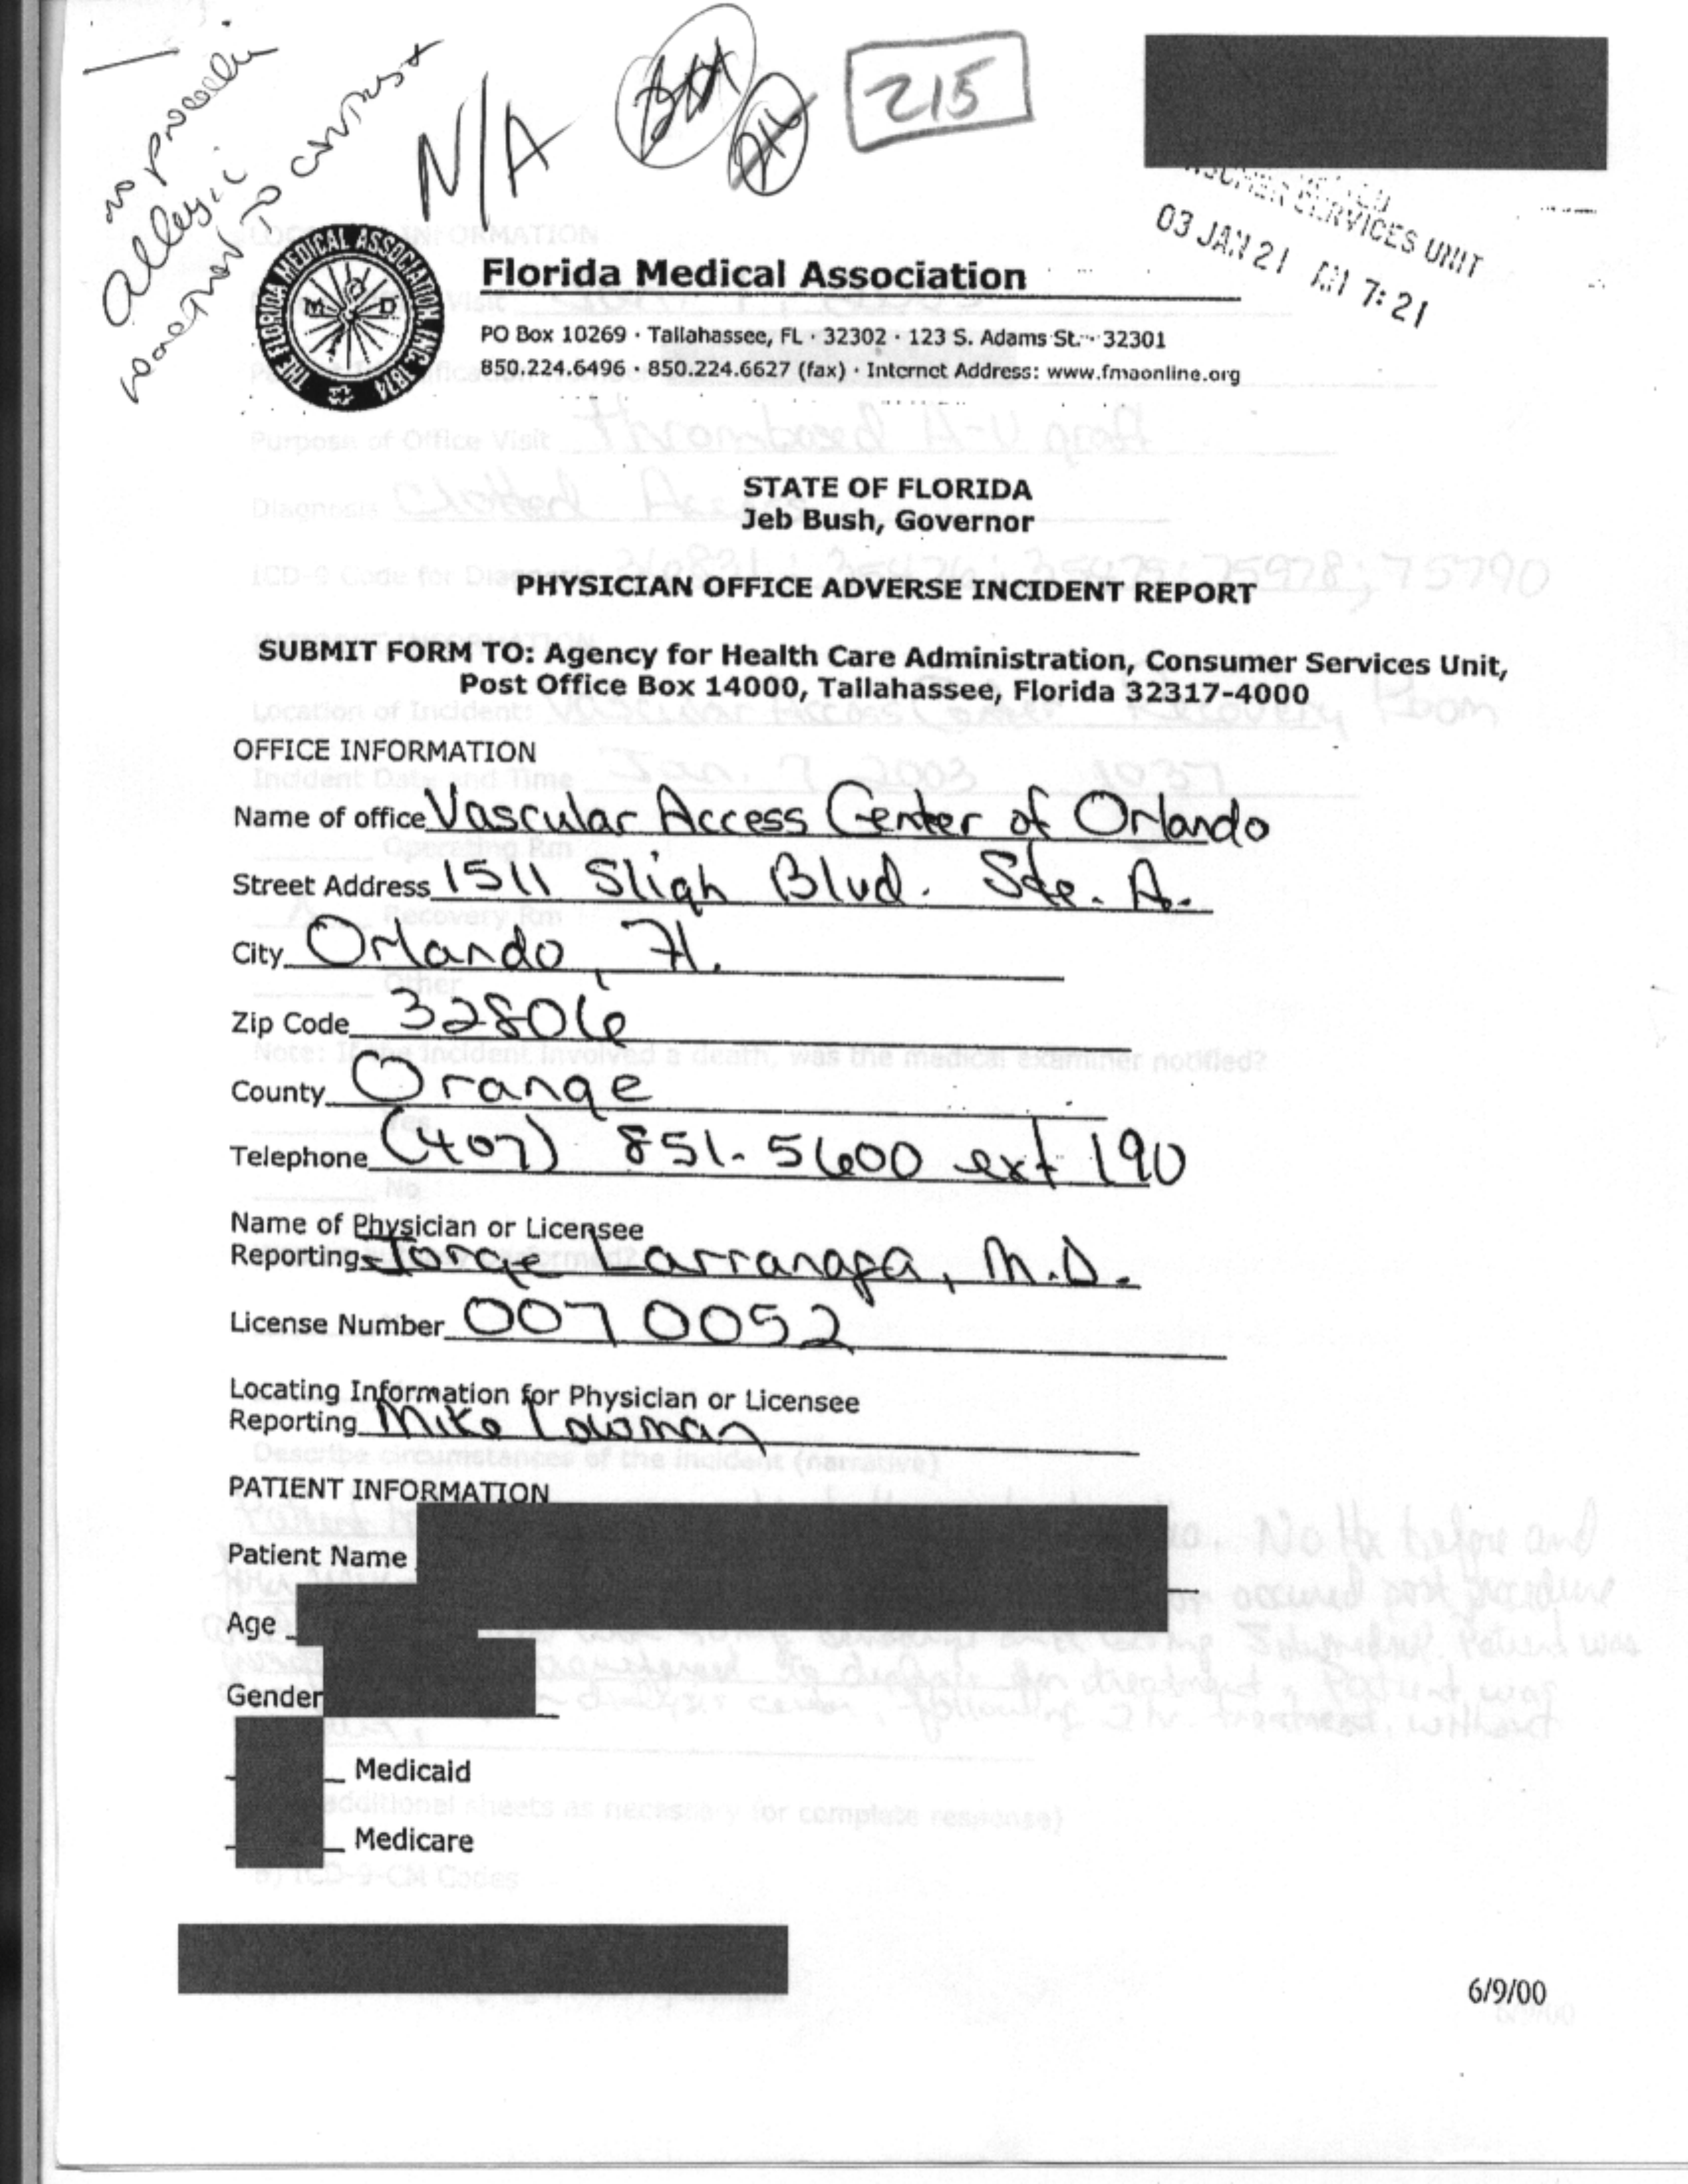 no procedu
allergic
reaction to contrast
N/A
215
SERVICES UNIT
03 JAN 21 AM 7:21
THE FLORIDA MEDICAL ASSOCIATION INC. 1874
M D
Florida Medical Association
PO Box 10269 · Tallahassee, FL · 32302 · 123 S. Adams St. · 32301
850.224.6496 · 850.224.6627 (fax) · Internet Address: www.fmaonline.org
STATE OF FLORIDA
Jeb Bush, Governor
PHYSICIAN OFFICE ADVERSE INCIDENT REPORT
SUBMIT FORM TO: Agency for Health Care Administration, Consumer Services Unit,
Post Office Box 14000, Tallahassee, Florida 32317-4000
OFFICE INFORMATION
Name of office Vascular Access Center of Orlando
Street Address 1511 Sligh Blvd. Ste. A.
City Orlando, Fl.
Zip Code 32806
County Orange
Telephone (407) 851-5600 ext 190
Name of Physician or Licensee
Reporting Jorge Larranaga, M.D.
License Number 0070052
Locating Information for Physician or Licensee
Reporting Mike Lowman
PATIENT INFORMATION
Patient Name
Age
Gender
Medicaid
Medicare
6/9/00